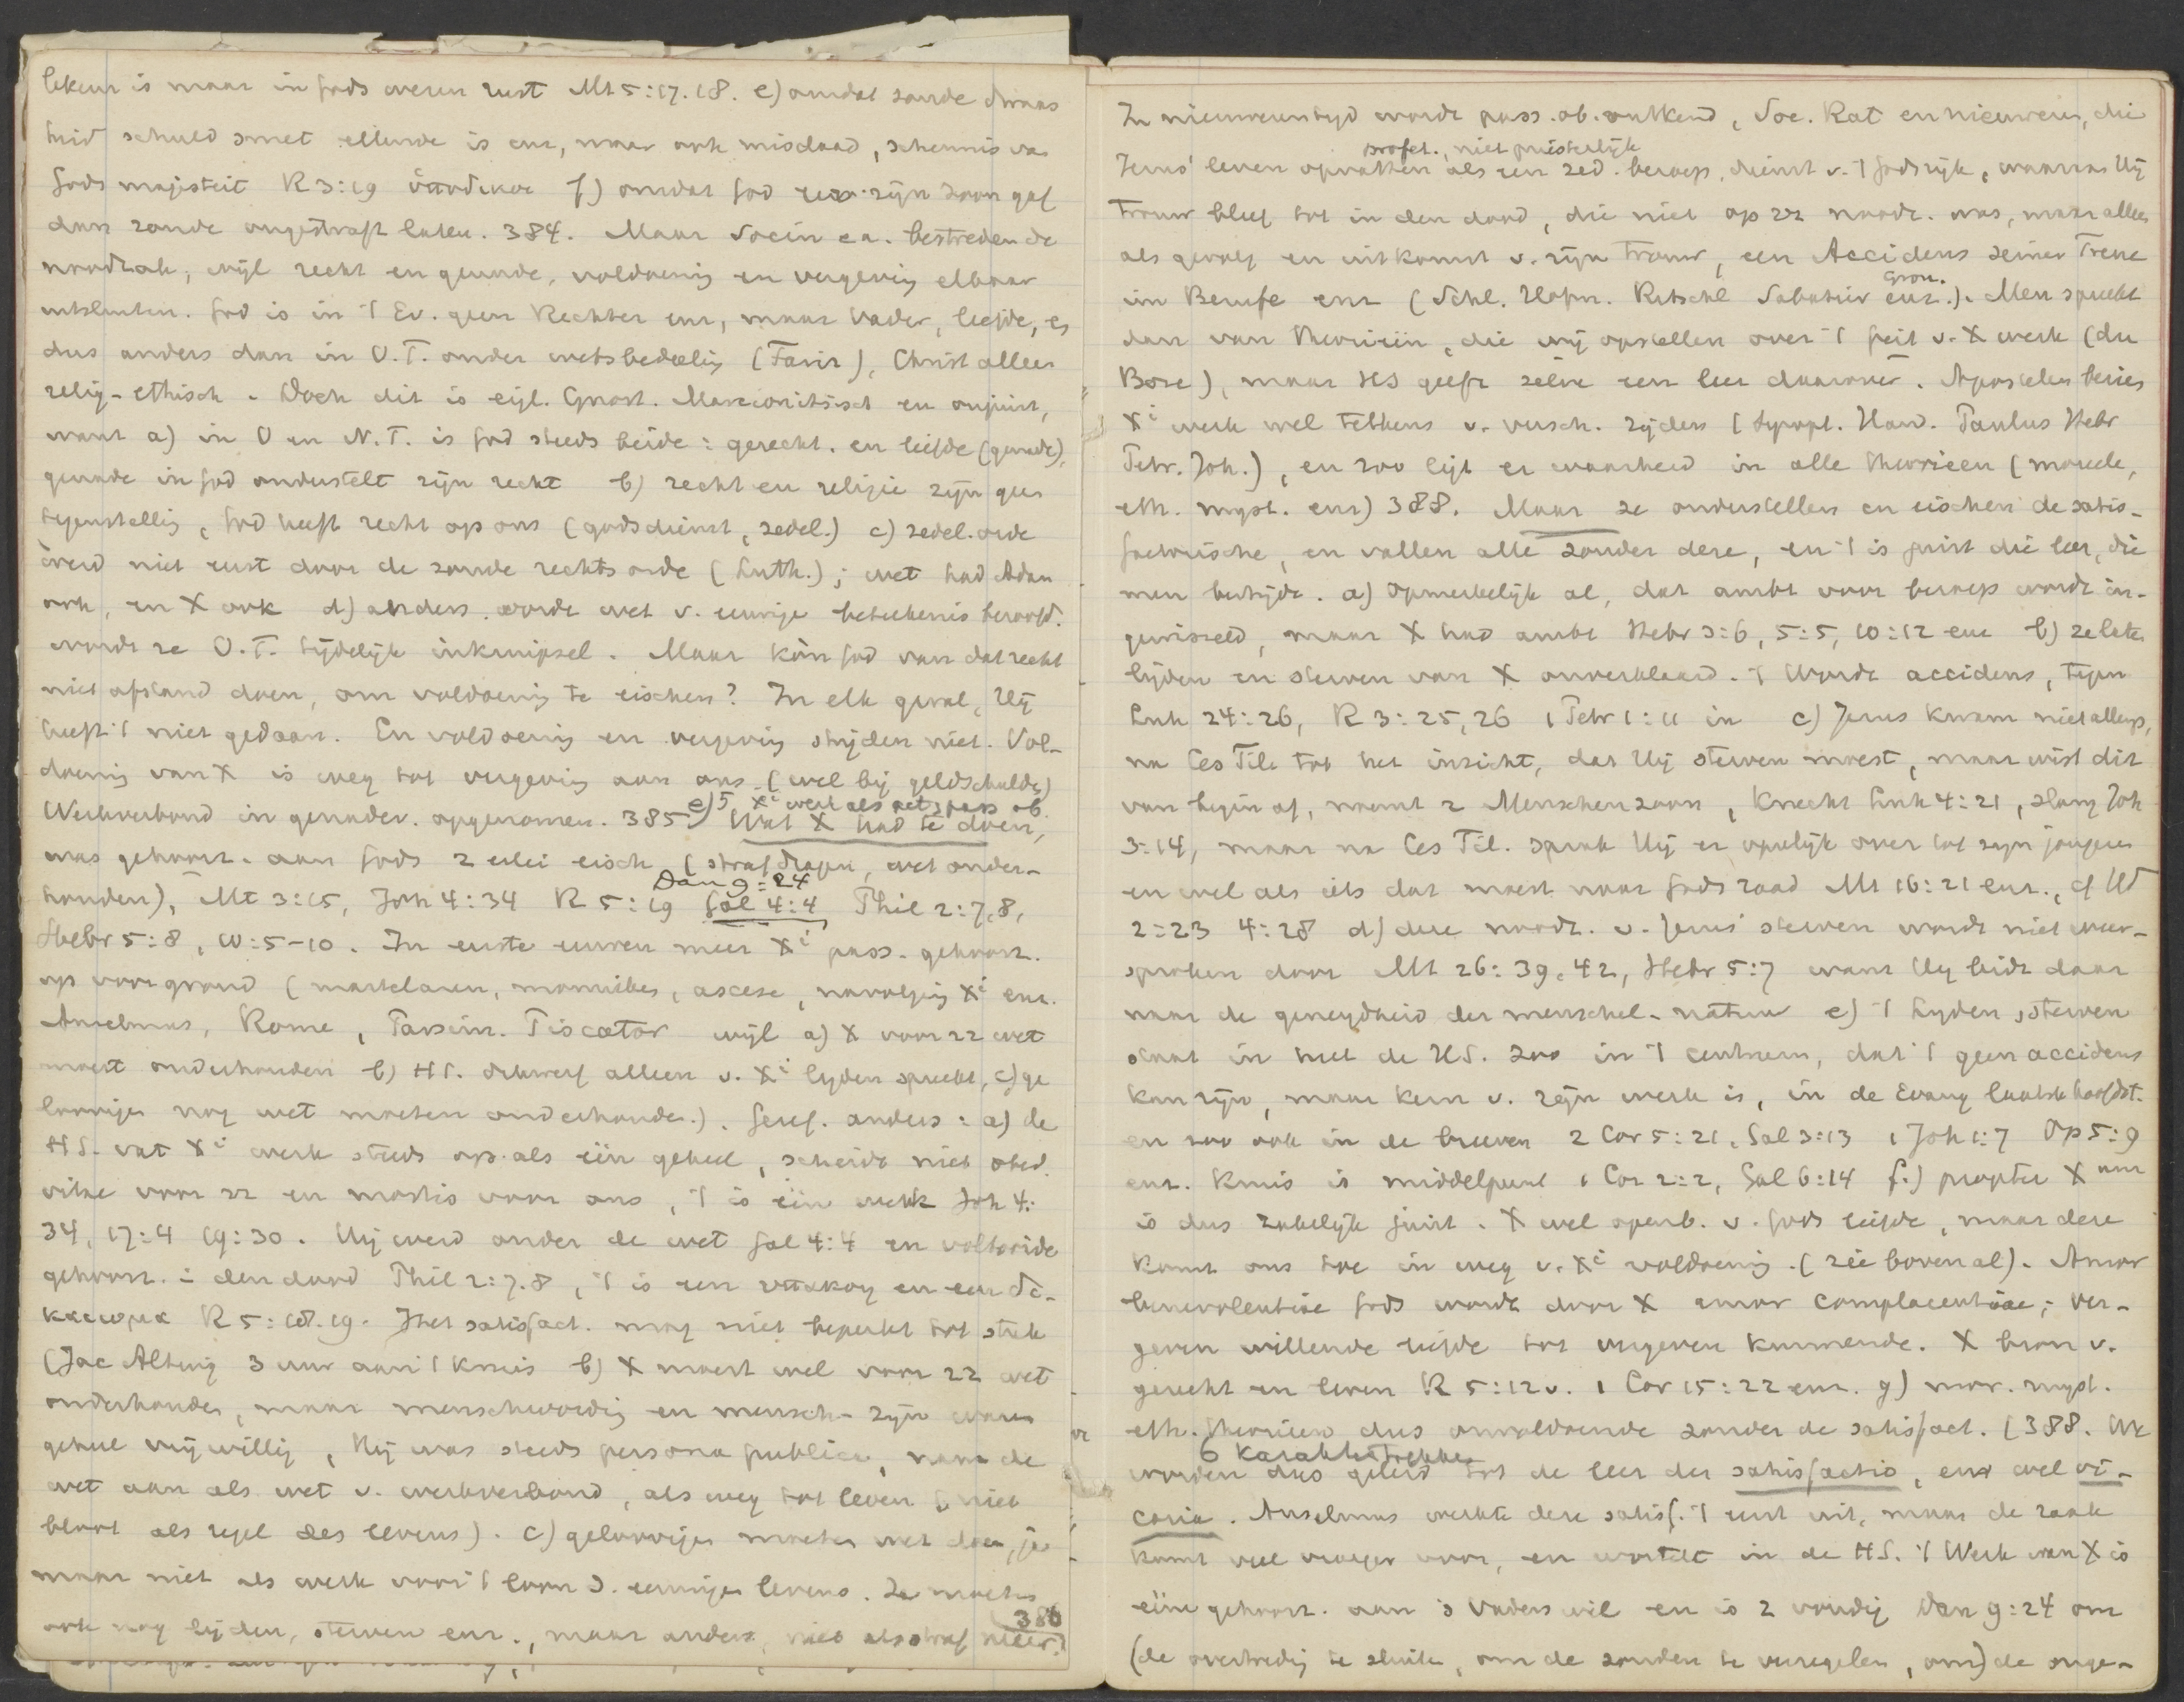 lekeur is maar in Gods wezen rust Mt 5:17.18. e) omdat zonde dwaas
heid schuld smet ellende is enz, maar ook misdaad, schennis van
Gods majesteit R 3:19 ὑποδικος f) omdat God zijn zoon gaf
dan zonde ongestraft laten. 384. Maar Socin ea. bestreden de
noodzak, wijl recht en genade, voldoening en vergeving elkaar
uitsluiten. God is in 't Ev. geen Rechter enz, maar Vader, liefde,
dus anders dan in O.T. onder wetsbedeeling, Christ alleen
relig-ethisch. Doch dit is eigl. Gnost. Marcionitisch en onjuist,
want a) in O en N.T. is God steeds beide: gerecht. en liefde (genade),
genade in God onderstelt zijn recht b) recht en religie zijn geen
tegenstelling, God heeft recht op ons (godsdienst, zedel.) c) zedel. orde
werd niet eerst door de zonde rechtsorde (Luth.); wet had Adam
ook, en X ook d) anders wordt wet v. eeuwige beteekenis beroofd.
wordt ze O.T. tijdelijk inkruipsel. Maar kòn God van dat recht
niet afstand doen, om voldoening te eischen? In elk geval, Hij
heeft 't niet gedaan. En voldoening en vergeving strijden niet. Vol-
doening van X is weg tot vergeving aan ons (wel bij geldschulds)
Werkverbond in genadev. opgenomen. 385 e) 5, Xi werk als act. pass ob. Wat X had te doen,
was gehoorz. aan Gods 2 erlei eisch (straf dragen, wet onder-
houden), Mt 3:15, Joh 4:34 R 5:19 Dan 9:24 Gal 4:4 Phil 2:7,8,
Hebr 5:8, 10:5-10. In eerste eeuwen meer Xi pass. gehoorz.
op voorgrond (martelaren, monniken, ascese, navolging Xi enz.
Anselmus, Rome, Parsim. Piscator wijl a) X voor zz wet
moest onderhouden b) HS. dikwerf alleen v. Xi lijden spreekt, c) ge
loovigen nog wet moeten onderhouden.). Geref. anders: a) de
HS. vat Xi werk steeds op als één geheel, scheidt niet obed.
vitae voor zz en mortis voor ons, 't is één werk Joh 4:
34, 17:4 19:30. Hij werd onder de wet Gal 4:4 en voltooide
gehoorz. in den dood Phil 2:7.8, 't is een ὑπακοη en een δι-
καιωμα R 5:18.19. Het satisfact. mag niet beperkt tot straf
(Jac Alting 3 uur aan 't kruis b) X moest wel voor zz wet
onderhouden, maar menschwording en mensch-zijn waren
geheel vrijwillig, Hij was steeds persona publica, nam de
wet aan als wet v. werkverbond, als weg tot leven (niet
bloot als regel des levens). c) geloovigen moeten wet doen, ja
maar niet als werk voor 't loon d. eeuwigen levens. Ze moeten
ook nog lijden, sterven enz., maar anders, niet als straf meer. 386
In nieuweren tijd wordt pass. ob. ontkend, Soc. Rat en nieuweren, die
Jezus' leven opvatten als een zed. beroep, profet., niet priesterlijk dienst v. 't Godsrijk, waaraan Hij
trouw bleef tot in den dood, die niet op zz noodz. was, maar alleen
als gevolg en uitkomst v. zijn trouw, een Accidens seiner Treue
im Berufe enz (Schl. Hofm. Ritschl Sabatier Gron. enz.). Men spreekt
dan van theorieën, die wij opstellen over 't feit v. X werk (du
Bose), maar HS geeft zelve een leer daarover. Apostelen bezien
Xi werk wel telkens v. versch. zijden (Synopt. Hand. Paulus Hebr
Petr. Joh.), en zoo ligt er waarheid in alle theorieen (moreele,
eth. myst. enz) 388. Maar ze onderstellen en eischen de satis-
factorische, en vallen alle zonder deze, en 't is juist die leer, die
men bestrijdt. a) Opmerkelijk al, dat ambt voor beroep wordt in-
gewisseld, maar X had ambt Hebr 3:6, 5:5, 10:12 enz b) ze laten
lijden en sterven van X onverklaard. 't Wordt accidens, tegen
Luk 24:26, R 3:25,26 1 Petr 1:11 in c) Jezus kwam niet allengs,
na Ces Fil. tot het inzicht, dat Hij sterven moest, maar wist dit
van begin af, noemt z Menschenzoon, Knecht Luk 4:21, slang Joh
3:14, maar na Ces Fil. sprak Hij er openlijk over tot zijn jongeren
en wel als iets dat moest naar Gods raad Mt 16:21 enz., cf Hd
2:23 4:28 d) deze noodz. v. Jezus' sterven wordt niet weer-
sproken door Mt 26:39.42, Hebr 5:7 want Hij bidt daar
naar de geneigdheid der menschel. natuur e) 't Lijden, sterven
staat in heel de HS. zoo in 't centrum, dat 't geen accidens
kan zijn, maar kern v. zijn werk is, in de Evang laatste hoofdst.
en zoo ook in de brieven 2 Cor 5:21, Gal 3:13 1 Joh 1:7 Op 5:9
enz. Kruis is middelpunt 1 Cor 2:2, Gal 6:14 f.) propter Xum
is dus zakelijk juist. X wel openb. v. Gods liefde, maar deze
komt ons toe in weg v. Xi voldoening. (zie boven al). Amor
benevolentiae Gods wordt door X amor complacentiae; ver-
geven willende liefde tot vergeven kunnende. X bron v.
gerecht en leven R 5:12v. 1 Cor 15:22 enz. g) mor. myst.
eth. theorieen dus onvoldoende zonder de satisfact. (388. We
worden dus geleid 6 Karaktertrekken tot de leer der satisfactio, en wel vi-
caria. Anselmus werkte deze satisf. 't eerst uit, maar de zaak
komt veel vroeger voor, en wortelt in de HS. 't Werk van X is
eéne gehoorz. aan 's Vaders wil en is 2 voudig Dan 9:24 om
(de overtreding te sluiten, om de zonden te verzegelen, om) de onge-